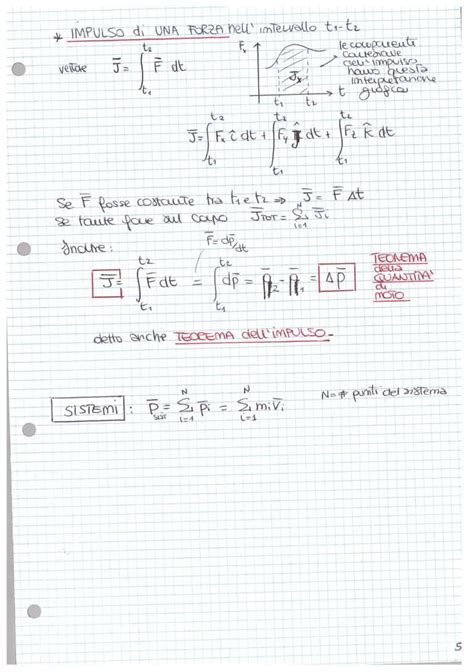 * IMPULSO di UNA FORZA nell' intervallo t₁-t₂
vettore J̄ = ∫_{t₁}^{t₂} F̄ dt
Fₓ
Jₓ
t₁ t₂ t
le componenti
cartesiane
dell'impulso
hanno questa
interpretazione
grafica
J̄ = ∫_{t₁}^{t₂} Fₓ î dt + ∫_{t₁}^{t₂} F_y ĵ dt + ∫_{t₁}^{t₂} F_z k̂ dt
Se F̄ fosse costante tra t₁ e t₂ ⇒ J̄ = F̄ Δt
se tante forze sul corpo J̄_TOT = Σ_{i=1}^{N} J̄ᵢ
Inoltre:
F̄ = dp̄/dt
J̄ = ∫_{t₁}^{t₂} F̄ dt = ∫_{t₁}^{t₂} dp̄ = p̄₂ - p̄₁ = Δp̄
TEOREMA
della
QUANTITA'
di
MOTO
detto anche TEOREMA dell'IMPULSO.
SISTEMI : P̄_sist = Σ_{i=1}^{N} p̄ᵢ = Σ_{i=1}^{N} mᵢ v̄ᵢ
N = # punti del sistema
5